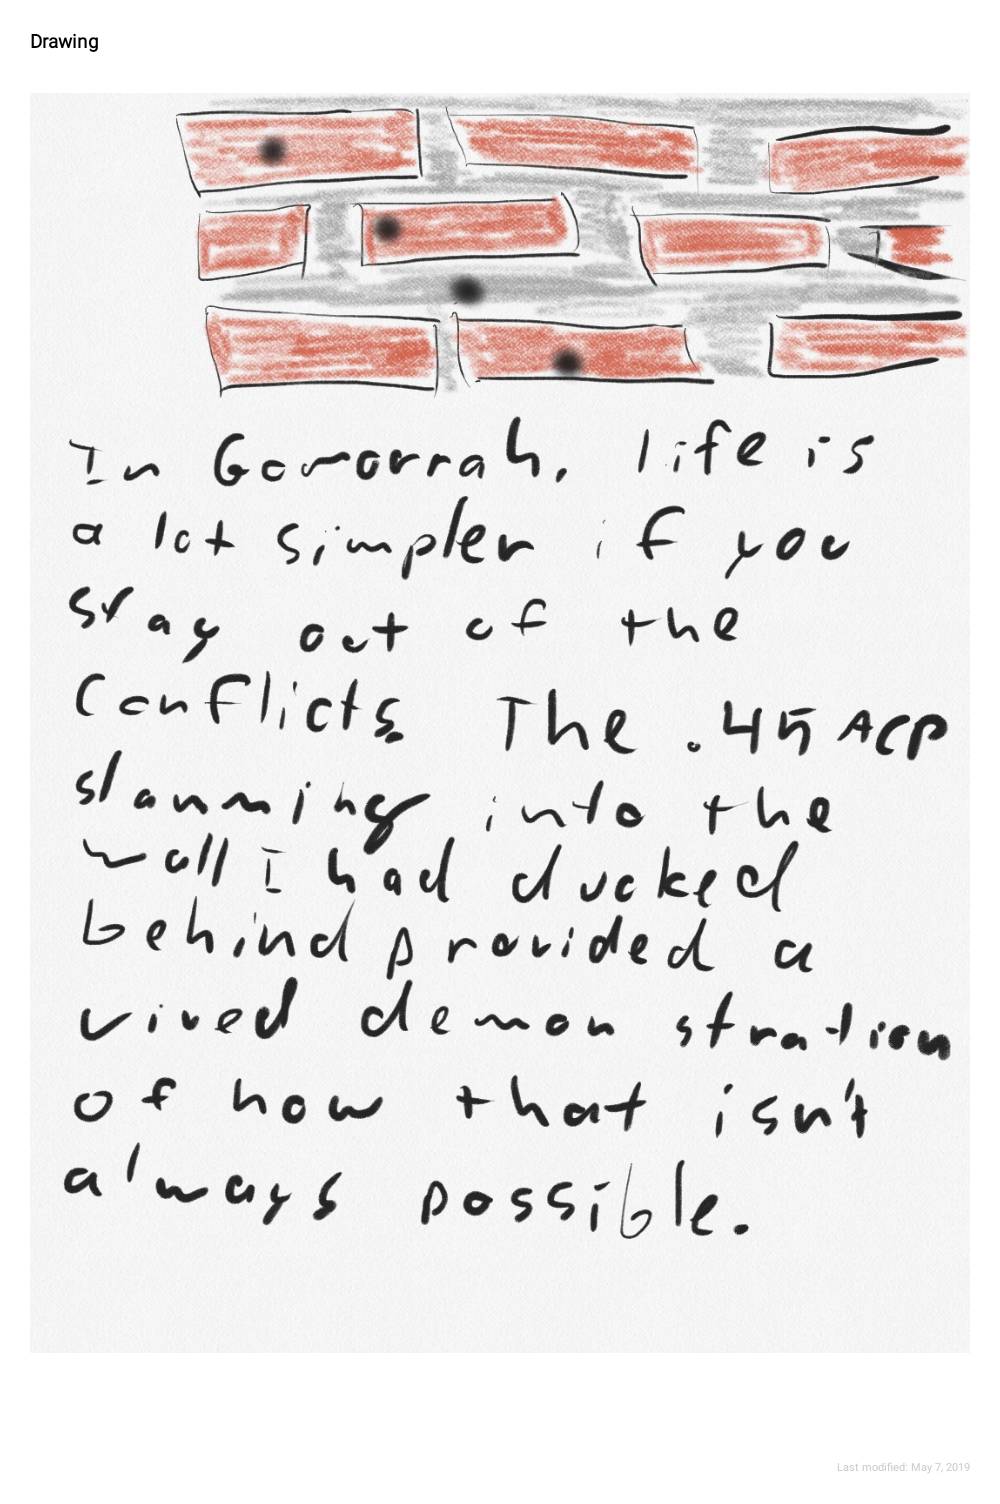 Drawing
In Gomorrah, life is
a lot simpler if you
stay out of the
Conflicts. The .45 ACP
slamming into the
wall I had ducked
behind provided a
vived demon stration
of how that isn't
always possible.
Last modified: May 7, 2019